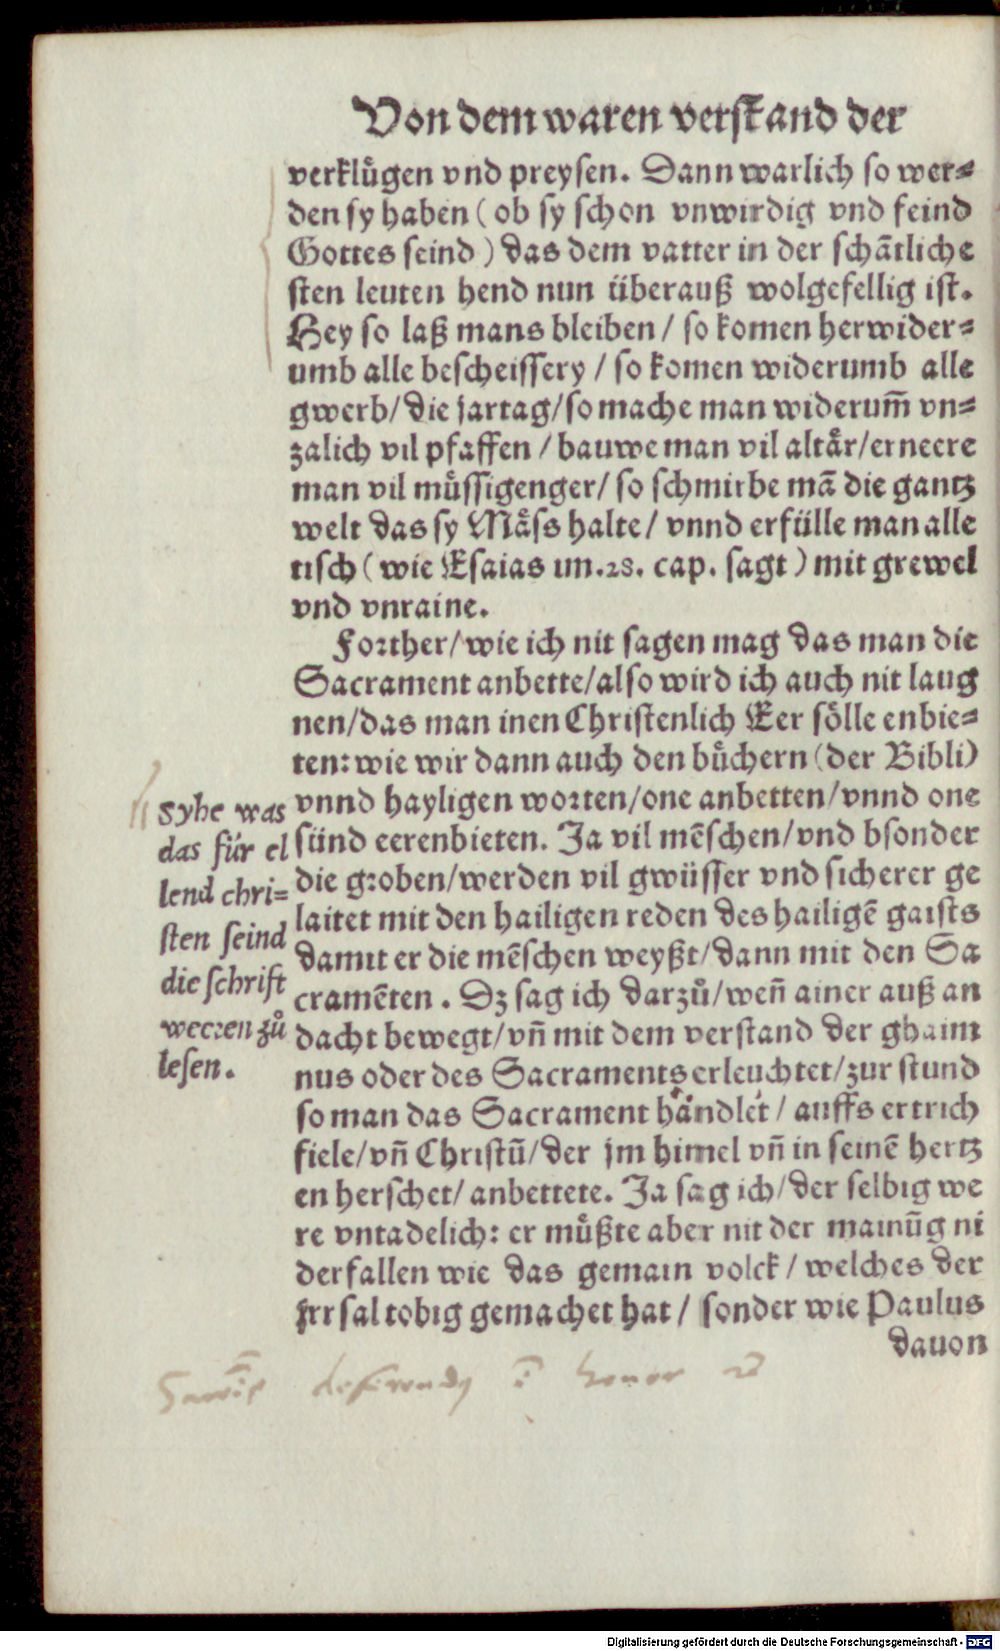 Von dem waren verstand der
verklůgen vnd preysen. Dann warlich so wer⸗
den sy haben ( ob sy schon vnwirdig vnd feind
Gottes seind ) das dem vatter in der schātliche
sten leuten hend nun überauß wolgefellig ist.
Hey so laß mans bleiben / so komen herwider⸗
umb alle bescheissery / so komen widerumb alle
gwerb/ die jartag/ so mache man widerum̄ vn⸗
zalich vil pfaffen / bauwe man vil altaͤr/ erneere
man vil muͤssigenger/ so schmirbe mā die gantz
welt das sy Maͤss halte/ vnnd erfülle man alle
tisch ( wie Esaias im .28. cap. sagt ) mit grewel
vnd vnraine.
Forther/ wie ich nit sagen mag das man die
Sacrament anbette/ also wird ich auch nit laug
nen/ das man inen Christenlich Eer soͤlle enbie⸗
ten: wie wir dann auch den buͤchern (der Bibli)
vnnd hayligen worten/ one anbetten/ vnnd one
sünd eerenbieten. Ja vil mēschen/ vnd bsonder
die groben/ werden vil gwüsser vnd sicherer ge
laitet mit den hailigen reden des hailigē gaists
damit er die mēschen weyßt/ dann mit den Sa
cramēten . Dz sag ich darzů/ weñ ainer auß an
dacht bewegt/ vñ mit dem verstand der ghaim
nus oder des Sacraments erleuchtet/ zur stund
so man das Sacrament handlet / auffs ertrich
fiele/ vñ Christū/ der jm himel vñ in seinē hertz
en herschet/ anbettete. Ja sag ich/ der selbig we
re vntadelich: er muͤßte aber nit der mainūg ni
derfallen wie das gemain volck / welches der
jrrsal tobig gemachet hat / sonder wie Paulus
dauon
Syhe was
das für el
lend chri⸗
sten seind
die schrift
weeren zů
lesen.
Digitalisierung gefördert durch die Deutsche Forschungsgemeinschaft - DFG